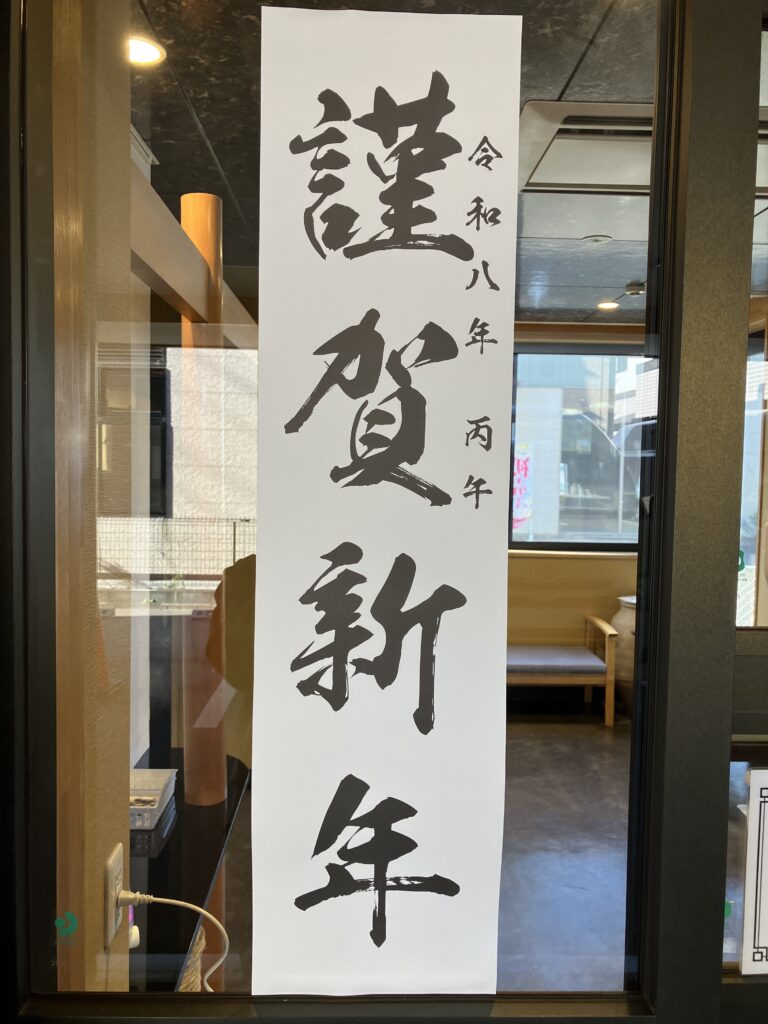 令和八年 丙午
謹賀新年